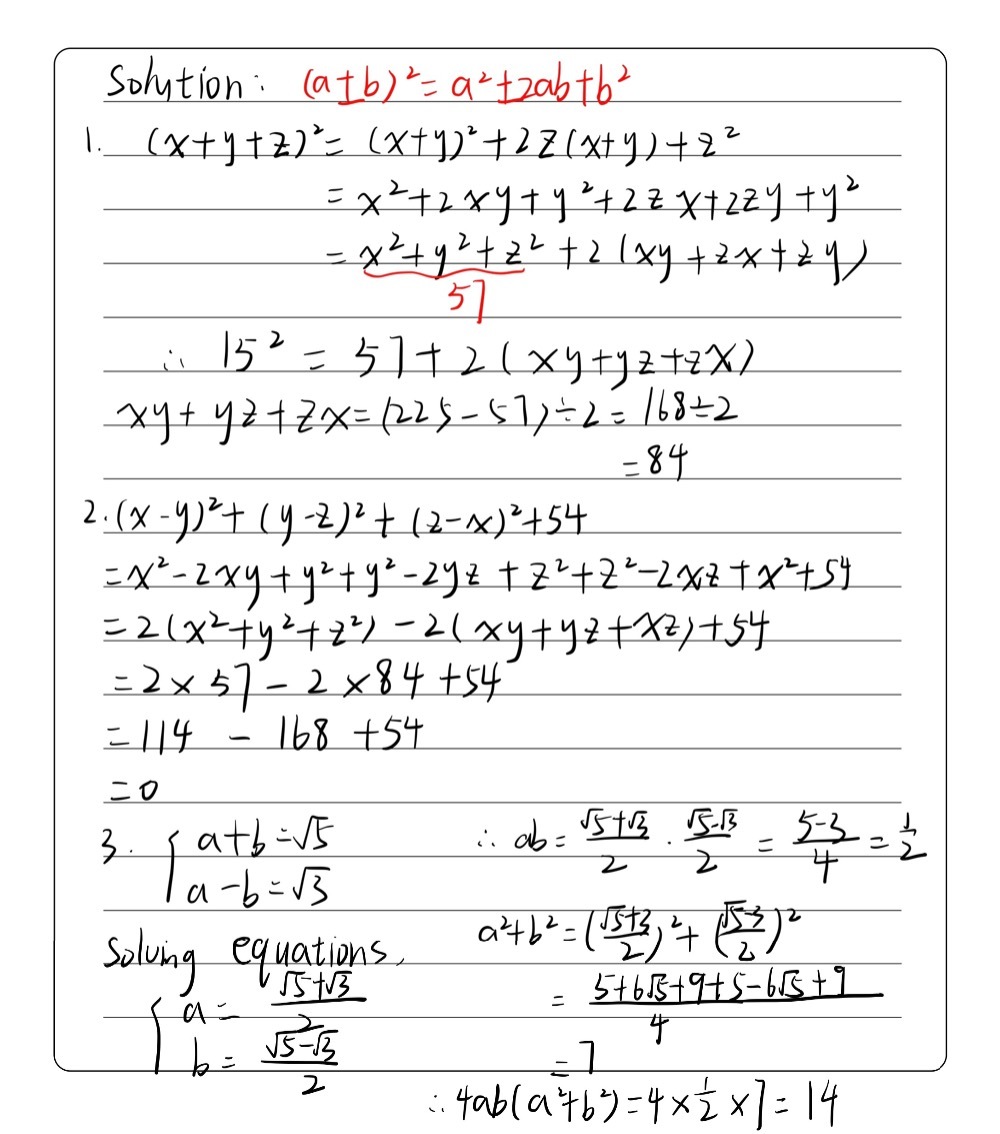 Solution: (a±b)²=a²±2ab+b²
1. (x+y+z)²= (x+y)²+2z(x+y)+z²
= x²+2xy+y²+2zx+2zy+y²
= x²+y²+z²+2(xy+zx+zy)
57
∴ 15² = 57+2(xy+yz+zx)
xy+yz+zx=(225-57)÷2=168÷2
=84
2.(x-y)²+(y-z)²+(z-x)²+54
=x²-2xy+y²+y²-2yz+z²+z²-2xz+x²+54
=2(x²+y²+z²)-2(xy+yz+xz)+54
=2×57-2×84+54
=114-168+54
=0
3. { a+b=√5
a-b=√3
Solving equations,
{ a= (√5+√3)/2
b= (√5-√3)/2
∴ ab= (√5+√3)/2 · (√5-√3)/2 = (5-3)/4 = 1/2
a²+b²=((√5+3)/2)²+((√5-3)/2)²
= (5+6√5+9+5-6√5+9)/4
=7
∴ 4ab(a²+b²)=4×1/2×7=14